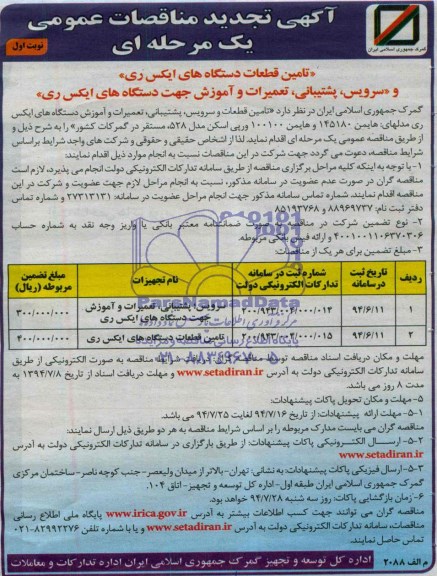 آگهی تجدید مناقصات عمومی
یک مرحله ای
نوبت اول
گمرک جمهوری اسلامی ایران
«تامین قطعات دستگاه های ایکس ری»
و «سرویس، پشتیبانی، تعمیرات و آموزش جهت دستگاه های ایکس ری»
گمرک جمهوری اسلامی ایران در نظر دارد «تامین قطعات و سرویس، پشتیبانی، تعمیرات و آموزش دستگاه های ایکس
ری مدلهای: هایمن ۱۴۵۱۸۰ و هایمن ۱۰۰۱۰۰ و رپی اسکن مدل ۵۲۸، مستقر در گمرکات کشور» را به شرح ذیل و
از طریق مناقصه عمومی یک مرحله ای اقدام نماید، لذا از اشخاص حقیقی و حقوقی و شرکت های واجد شرایط براساس
شرایط مناقصه، دعوت می گردد جهت شرکت در این مناقصات نسبت به انجام موارد ذیل اقدام نمایند:
۱- با توجه به اینکه کلیه مراحل برگزاری مناقصه از طریق سامانه تدارکات الکترونیکی دولت انجام می پذیرد، لازم است
مناقصه گران در صورت عدم عضویت در سامانه مذکور، نسبت به انجام مراحل لازم جهت عضویت و شرکت در این
مناقصه اقدام نمایند. شماره تماس سامانه مذکور جهت انجام مراحل عضویت در سامانه: ۲۷۳۱۳۱۳۱ و شماره تماس
دفتر ثبت نام: ۸۸۹۶۹۷۳۷ و ۸۵۱۹۳۷۶۸
۲- نوع تضمین شرکت در مناقصات بصورت ضمانتنامه معتبر بانکی یا واریز وجه نقد به شماره حساب
۴۰۰۱۰۰۱۱۰۶۳۷۰۳۰۶ و ارائه فیش بانکی مربوطه.
۳- مبلغ تضمین برای هر یک از مناقصات:
ردیف تاریخ ثبت در سامانه شماره ثبت در سامانه تدارکات الکترونیکی دولت نام تجهیزات مبلغ تضمین مربوطه (ریال)
۱ ۹۴/۶/۱۱ ۲۰۰/۹۴۳/۰۰۴/۰۰۰/۰۱۴ سرویس، پشتیبانی، تعمیرات و آموزش جهت دستگاه های ایکس ری ۳۰۰/۰۰۰/۰۰۰
۲ ۹۴/۶/۱۱ ۰۰۰/۰۱۵ تامین قطعات دستگاه های ایکس ری ۴۰۰/۰۰۰/۰۰۰
ParsNamadData
۰۲۱-۸۸۳۴۹۶۷۰
مهلت و مکان دریافت اسناد مناقصه توسط مناقصه به صورت الکترونیکی از طریق
سامانه به آدرس www.setadiran.ir و مهلت دریافت اسناد از تاریخ ۱۳۹۴/۷/۸ به
مدت ۸ روز می باشد.
۵- مهلت و مکان تحویل پاکات پیشنهادات:
۵-۱- مهلت ارائه پیشنهادات: از تاریخ ۹۴/۷/۱۶ لغایت ۹۴/۷/۲۵ می باشد.
مناقصه گران می بایست مدارک مربوطه را بر اساس شرایط مناقصه به هر دو طریق ذیل ارسال نمایند:
۵-۲- ارسال الکترونیکی پاکات پیشنهادات: از طریق بارگزاری در سامانه تدارکات الکترونیکی دولت به آدرس
www.setadiran.ir
۵-۳- ارسال فیزیکی پاکات پیشنهادات: به نشانی: تهران- بالاتر از میدان ولیعصر- جنب کوچه ناصر- ساختمان مرکزی
گمرک جمهوری اسلامی ایران طبقه اول- اداره کل توسعه و تجهیز- اتاق ۱۰۴.
۶- زمان بازگشایی پاکات: روز سه شنبه ۹۴/۷/۲۸ خواهد بود.
مناقصه گران می توانند جهت کسب اطلاعات بیشتر به آدرس www.irica.gov.ir پایگاه ملی اطلاع رسانی
مناقصات، سامانه تدارکات الکترونیکی دولت به آدرس www.setadiran.ir و یا با شماره تلفن ۸۲۹۹۲۲۷۶-۰۲۱
تماس حاصل نمایند.
م الف ۲۰۸۸
اداره کل توسعه و تجهیز گمرک جمهوری اسلامی ایران اداره تدارکات و معاملات